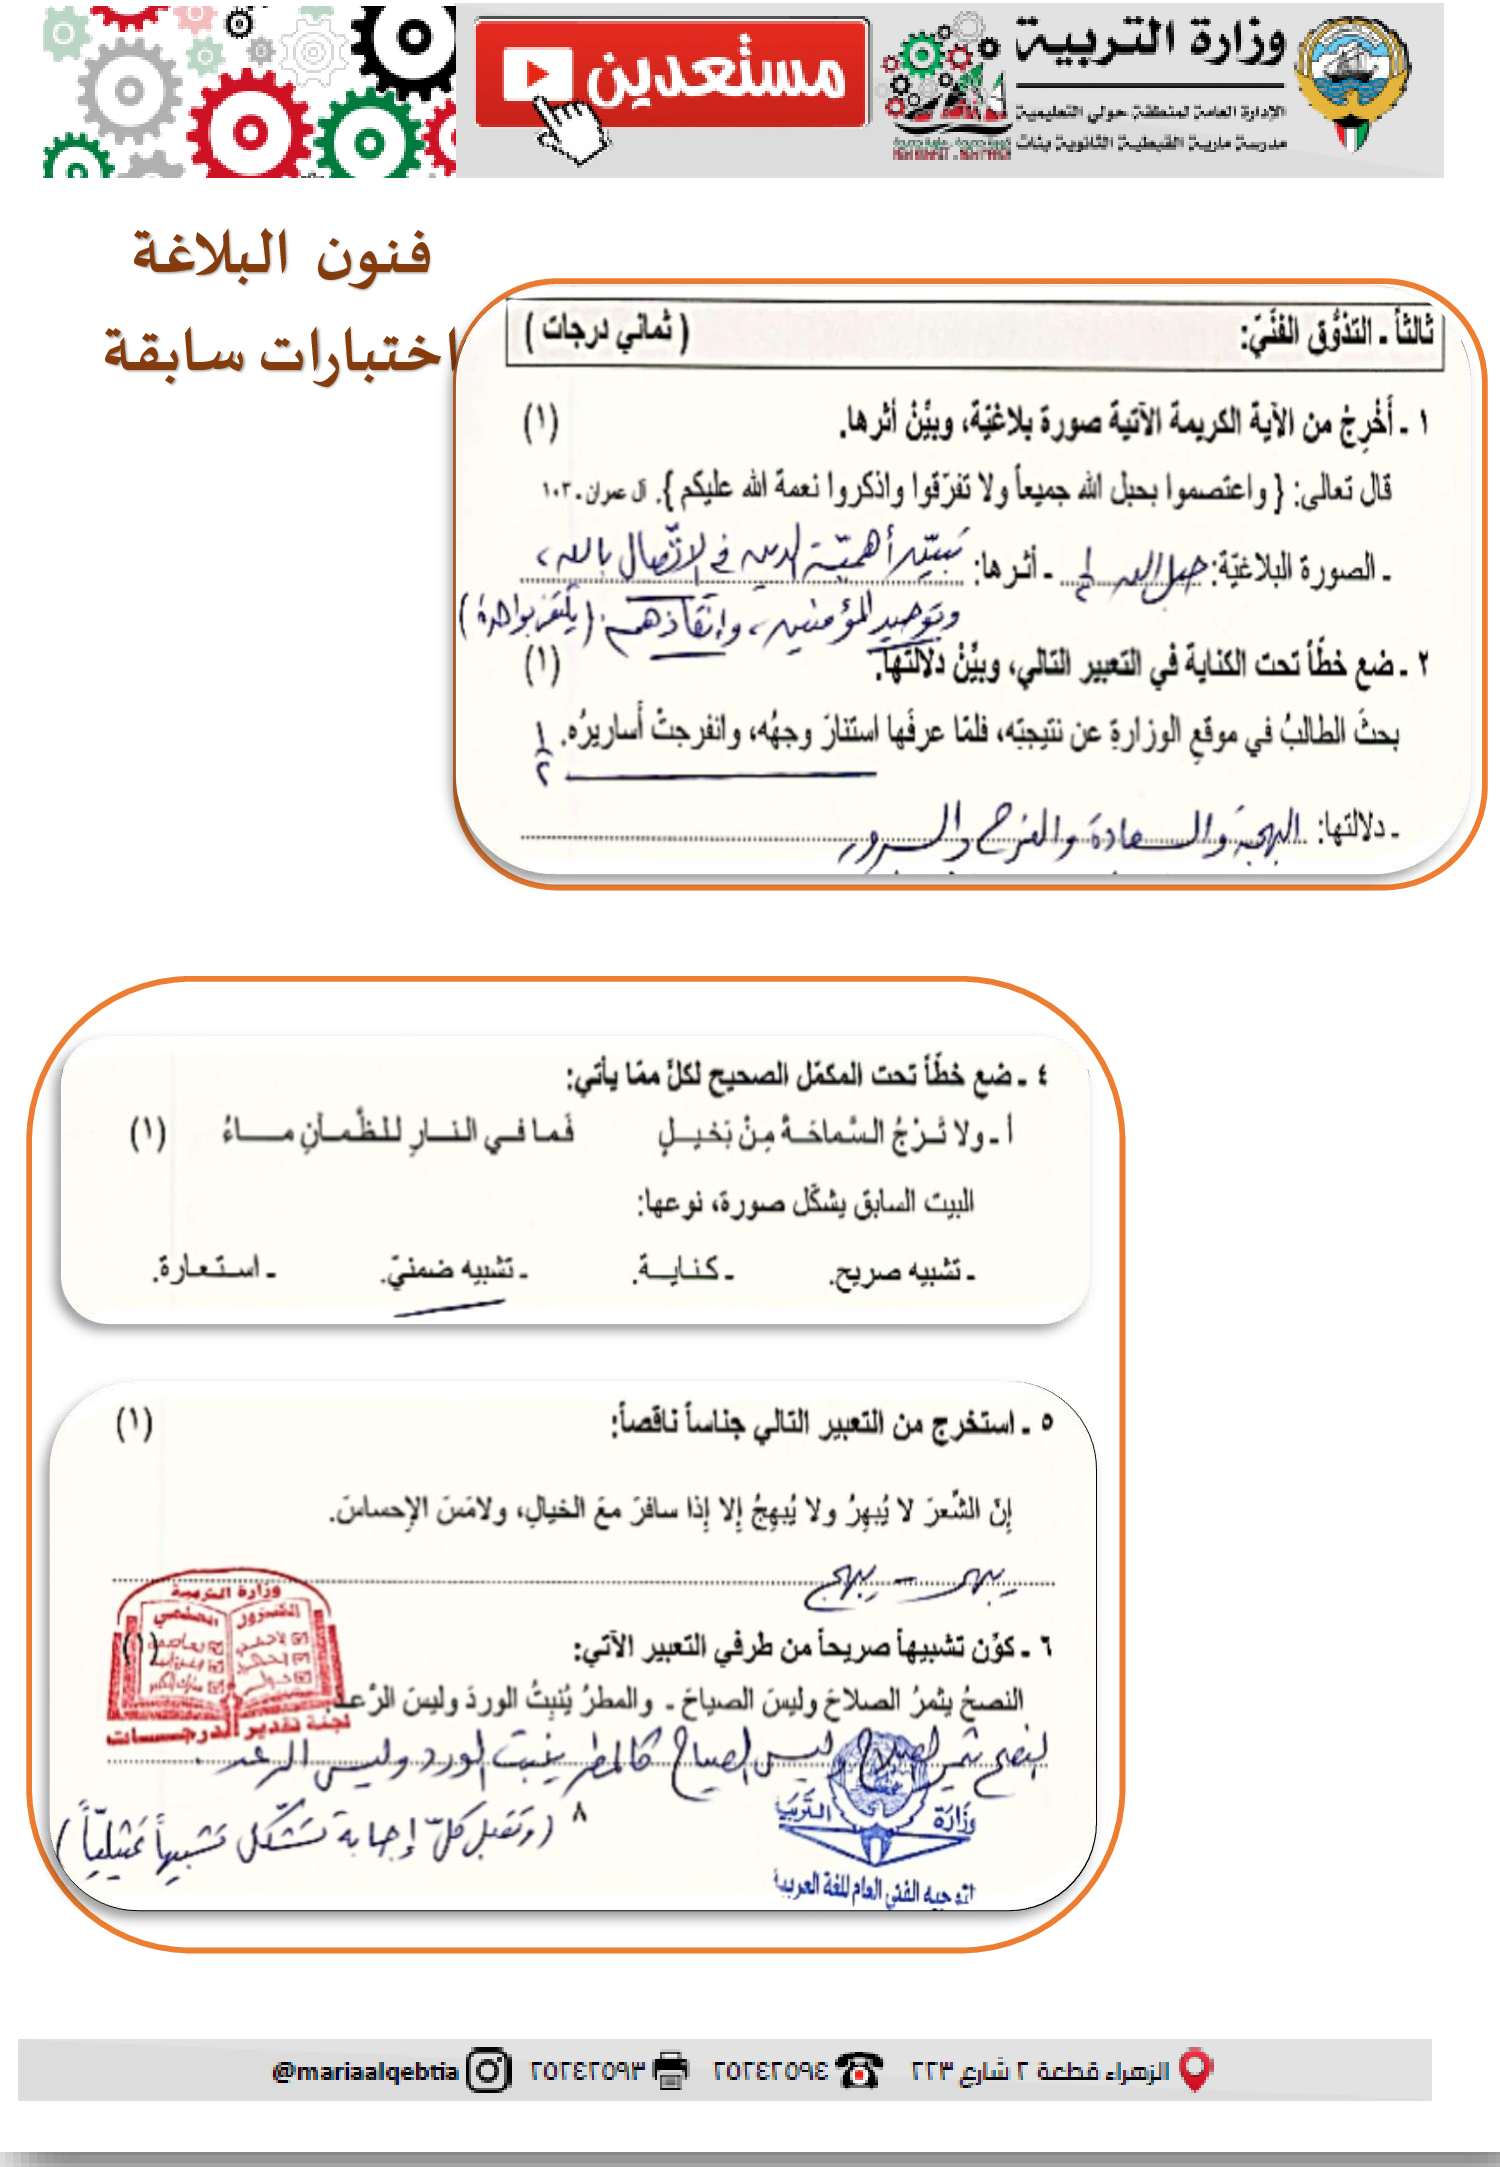 وزارة التربية
الإدارة العامة لمنطقة حولي التعليمية
مدرسة مارية القبطية الثانوية بنات
مستعدين
فنون البلاغة
اختبارات سابقة
ثالثاً ـ التذوُّق الفنّيّ: ( ثماني درجات )
١ ـ أَخْرِجْ من الآية الكريمة الآتية صورة بلاغيّة، وبيِّنْ أثرها. (١)
قال تعالى: { واعتصموا بحبل الله جميعاً ولا تفرّقوا واذكروا نعمة الله عليكم }. آل عمران ـ ١٠٣
ـ الصورة البلاغيّة: حبل الله ـ أثـرها: تبيّن أهميّة الدين في الاتّصال بالله،
وتوحيد المؤمنين، وإنقاذهم. (يكتفى بواحدة)
٢ ـ ضع خطّاً تحت الكناية في التعبير التالي، وبيِّنْ دلالتها. (١)
بحثَ الطالبُ في موقعِ الوزارةِ عن نتيجتِه، فلمّا عرفَها استنارَ وجهُه، وانفرجتْ أساريرُه. ١/٢
ـ دلالتها: البهجة والسعادة والفرح والسرور
٤ ـ ضع خطّاً تحت المكمّل الصحيح لكلّ ممّا يأتي:
أ ـ ولا تَـرْجُ السَّماحَـةَ مِنْ بَخيـلٍ فَما فـي النـارِ للظَّمـآنِ مـــاءُ (١)
البيت السابق يشكّل صورة، نوعها:
ـ تشبيه صريح. ـ كـنـايـــة. ـ تشبيه ضمنيّ. ـ اسـتـعـارة.
٥ ـ استخرج من التعبير التالي جناساً ناقصاً: (١)
إنّ الشِّعرَ لا يُبهِرُ ولا يُبهِجُ إلا إذا سافرَ معَ الخيالِ، ولامَسَ الإحساسَ.
يبهر – يبهج
٦ ـ كوّن تشبيهاً صريحاً من طرفي التعبير الآتي: (١)
النصحُ يثمرُ الصلاحَ وليسَ الصياحَ ـ والمطرُ يُنبِتُ الوردَ وليسَ الرَّعدَ.
النصح يثمر الصلاح وليس الصياح كالمطر ينبت الورد وليس الرعد.
(وتقبل كلّ إجابة تشكّل تشبيهاً تمثيليّاً) ٨
وزارة التربية
لجنة تقدير الدرجـــات
وزارة التربية
التوجيه الفني العام للغة العربية
الزهراء قطعة ٢ شارع ٢٢٣ ٢٥٢٤٢٥٩٤ ٢٥٢٤٢٥٩٣ @mariaalqebtia